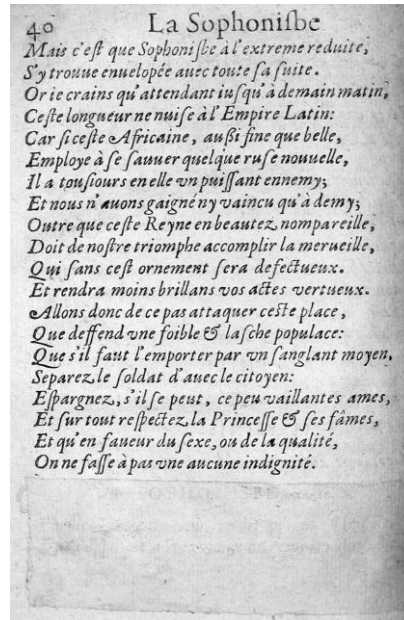 40 La Sophoniſbe
Mais c'eſt que Sophoniſbe à l'extreme reduite,
S'y trouue enuelopée auec toute ſa ſuite.
Or ie crains qu'attendant iuſqu'à demain matin,
Ceſte longueur ne nuiſe à l'Empire Latin:
Car ſi ceſte Africaine, außi fine que belle,
Employe à ſe ſauuer quelque ruſe nouuelle,
Il a touſiours en elle vn puiſſant ennemy;
Et nous n'auons gaigné ny vaincu qu'à demy;
Outre que ceſte Reyne en beautez nompareille,
Doit de noſtre triomphe accomplir la merueille,
Qui ſans ceſt ornement ſera defectueux.
Et rendra moins brillans vos actes vertueux.
Allons donc de ce pas attaquer ceſte place,
Que deffend vne foible & laſche populace:
Que s'il faut l'emporter par vn ſanglant moyen,
Separez le ſoldat d'auec le citoyen:
Eſpargnez, s'il ſe peut, ce peu vaillantes ames,
Et ſur tout reſpectez la Princeſſe & ſes fâmes,
Et qu'en faueur du ſexe, ou de la qualité,
On ne faſſe à pas vne aucune indignité.